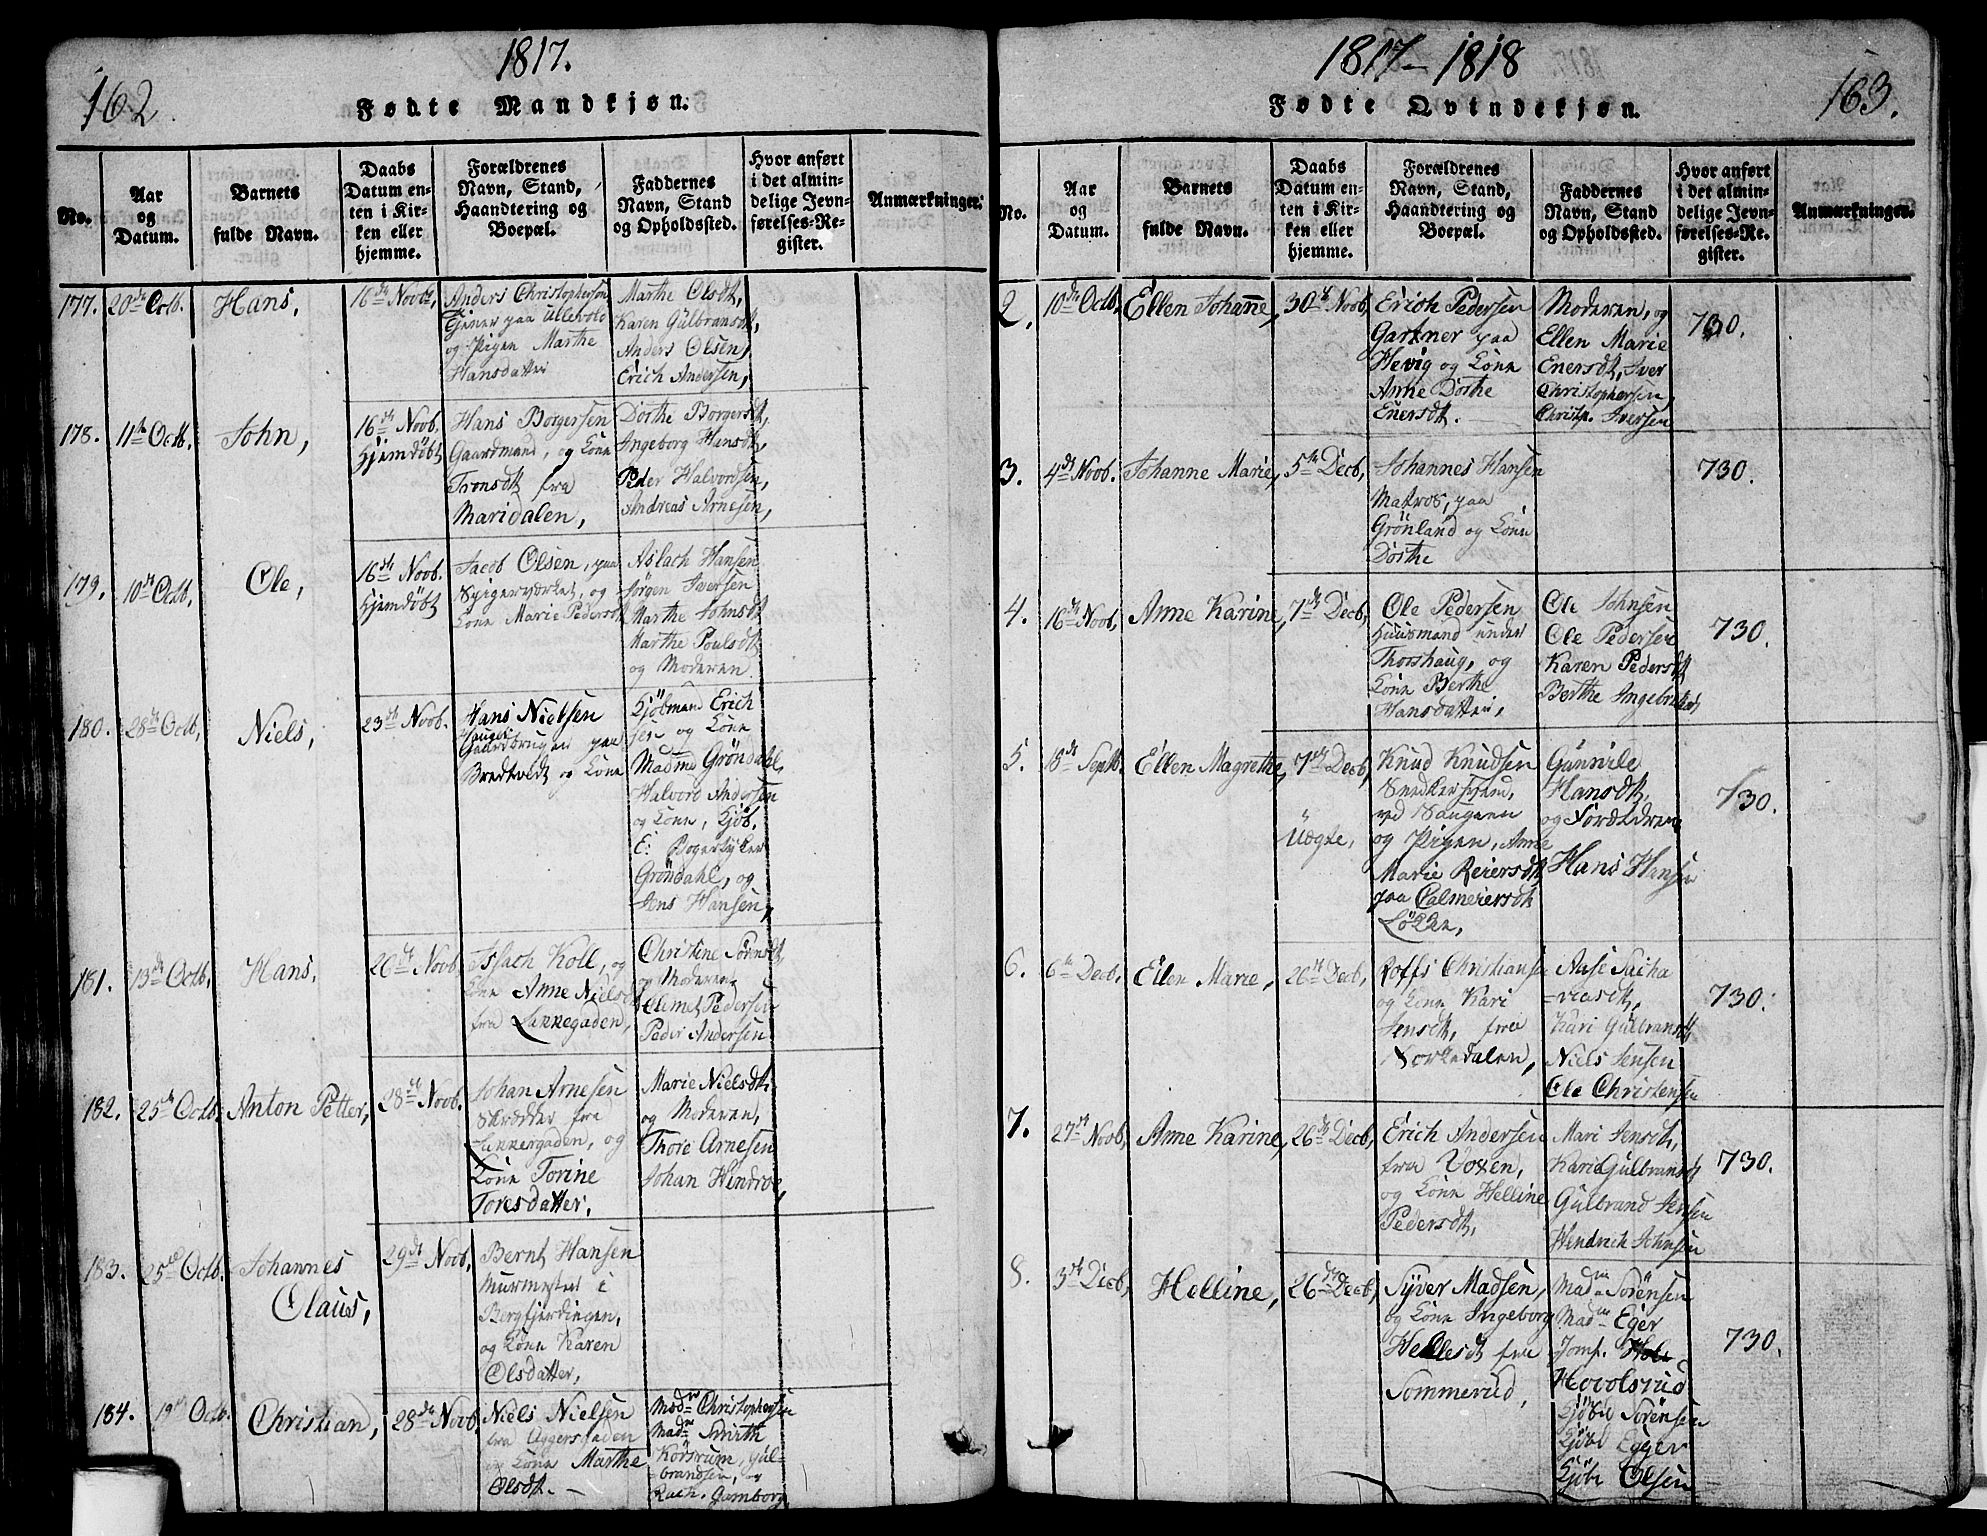 162
1817.
Fødte Mandkjøn.
No.
Aar
og
Datum.
Barnets
fulde Navn.
Daabs
Datum en-
ten i Kir-
ken eller
hjemme.
Forældrenes
Navn, Stand,
Haandtering og
Boepæl.
Faddernes
Navn, Stand
og Opholdssted.
Hvor anført
i det almin-
delige Jevn-
førelses-Re-
gister.
Anmærkninger.
177.
20de Octb.
Hans,
16de Novb,
Anders Christophersen
Tjener paa Ullevold
og Pigen Marthe
Hansdatter
Marthe Olsdt,
Karen Gulbransdt,
Anders Olsen,
Erich Andersen,
178.
11te Octb.
John,
16de Novb.
Hjemdöbt
Hans Borgersen
Gaardmand, og Kone
Tronsdt fra
Maridalen,
Dorthe Borgersdt,
Ingeborg Hansdt,
Peder Halvordsen,
Andreas Arnesen,
179.
10de Octb.
Ole,
16de Novb.
Hjemdöbt
Jacob Olsen, paa
Spigerverket, og
Kone Marie Pedersdt
Aslach Hansen
Jörgen Iversen
Marthe Johnsdt
Marthe Poulsdt
og Moderen.
180.
28de Octb,
Niels,
23de Novb.
Hans Nielsen
Gaardbruger paa
Bredtvedt og Kone
Kjöbmand Erich
sen og Kone
Madme Gröndahl,
Halvord Andersen
og Kone, Kjöb.
E: Bogertyker
Gröndahl, og
Jens Hansen,
181.
13de Octb.
Hans,
20de Novb
Isach Koll, og
Kone Anne Nielsd
fra Lakkegaden,
Christine Sörensdt,
og Moderen
Clemet Pedersen
Peder Andersen
182.
25de Octb.
Anton Petter,
28de Novb.
Johan Arnesen
Skrædder fra
Lakkergaden, og
Kone Torine
Toresdatter,
Marie Nielsdt,
og Moderen,
Thore Arnesen
Johan Hindric,
183.
25de Octb.
Johannes
Olaus,
29de Novb.
Bernt Hansen
Murmester i
Bergfjerdingen,
og Kone Karen
Olsdatter,
184.
19de Octb.
Christian,
28de Novb
Niels Nielsen
fra Aggersgaden
og Kone Marthe
Olsdt.
Madme Christophersen
Madme Smith
Korsrum, Gul-
brandsen, og
Rach. Gamborg
1817-1818
163.
Fødte Qvindekjøn.
No.
Aar
og
Datum.
Barnets
fulde Navn.
Daabs
Datum en-
ten i Kir-
ken eller
hjemme.
Forældrenes
Navn, Stand,
Haandtering og
Boepæl.
Faddernes
Navn, Stand
og Opholdssted.
Hvor anført
i det almin-
delige Jevn-
førelses-Re-
gister.
Anmærkninger.
2.
10de Octb,
Ellen Johanne,
30de Novb,
Erich Pedersen
Gartner paa
Hevig og Kone
Anne Dorthe
Enersdt.
Moderen, og
Ellen Marie
Enersdt, Iver
Christophersen,
Christp. Iversen
730.
3.
4de Novb.
Johanne Marie,
5te Decb,
Johannes Hansen
Matros, paa
Grönland og Kone
Dorthe
730.
4.
16de Novb,
Anne Karine,
7de Decb,
Ole Pedersen
Huusmand under
Thorshaug, og
Kone Berthe
Hansdatter,
Ole Johnsen
Ole Pedersen
Karen Pedersdt
Berthe Ingebrects
730.
5.
18de Septb.
Ellen Magrethe,
7de Decb,
Uægte,
Knud Knudsen
Snedkersvend,
ved Saugene
og Pigen, Anne
Marie Reiersdt
paa Calmeiersdt
Lökken,
Gunnile
Hansdt,
og Forældrene
Hans Hansen
730.
6.
6te Decb,
Ellen Marie,
26de Decb,
Roffs Christiansen
og Kone Kari
Jensdt, fra
Norkedalen,
Aase Sacha
=riasdt,
Kari Gulbransdt
Niels Jensen
Ole Christensen
730.
7.
27de Novb,
Anne Karine,
26de Decb,
Erich Andersen
fra Voxen,
og Kone Helline
Pedersdt,
Mari Jensdt,
Kari Gulbransdt
Gulbrand Jensen
Hendrich Johnsen
730.
8.
3de Decb,
Helline,
26de Decb,
Syver Madsen,
og Kone Ingeborg
Hellesdt fra
Sommerud,
Madme Sörensen
Madme Eger
Jomf.
Hovolsrud
Kjöbm Sörensen
Kjöbm Egger
Kjöbm Olsen
730.